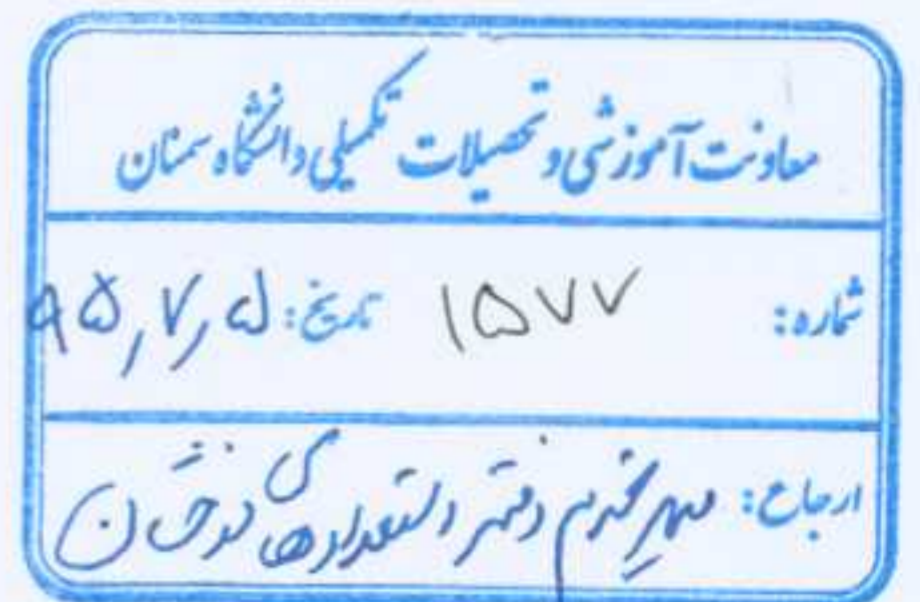 معاونت آموزشی و تحصیلات تکمیلی دانشگاه سمنان
شماره: ۱۵۷۷ تاریخ: ۹۵٫۷٫۵
ارجاع: مدیر محترم دفتر استعدادهای درخشان